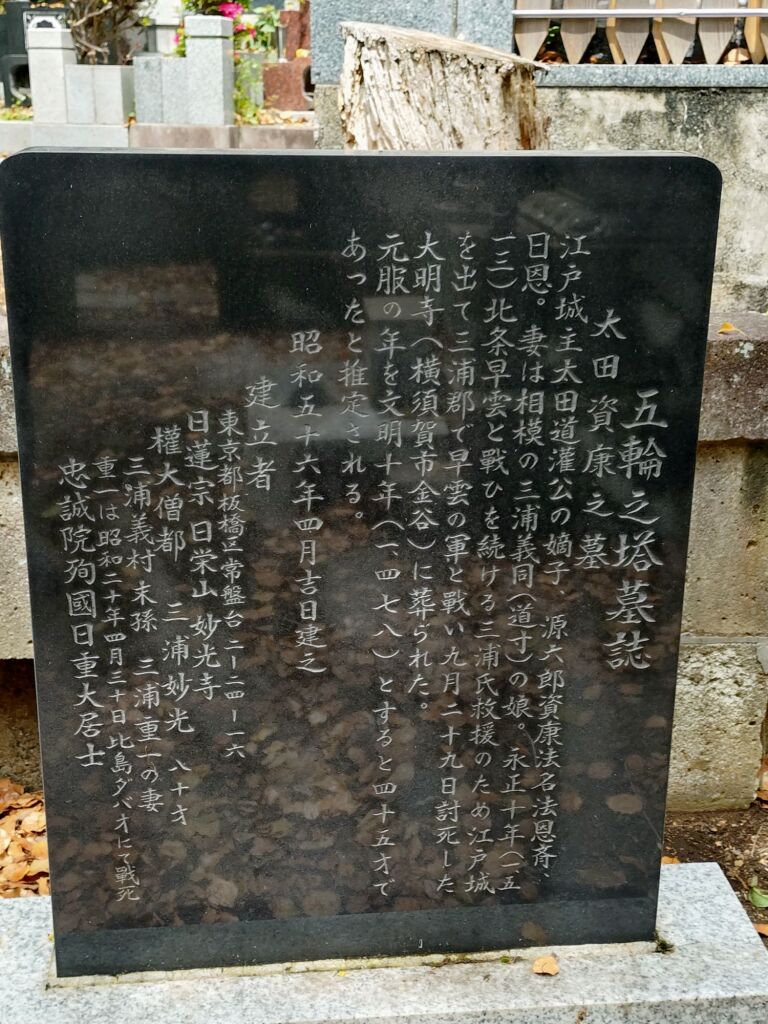 五輪之塔墓誌
太田資康之墓
江戸城主太田道灌公の嫡子　源六郎資康法名法恩斉、
日恩。妻は相模の三浦義同（道寸）の娘。永正十年（一五
一三）北条早雲と戰ひを続ける三浦氏救援のため江戸城
を出て三浦郡で早雲の軍と戰い九月二十九日討死した
大明寺（横須賀市金谷）に葬られた。
元服の年を文明十年（一、四七八）とすると四十五才で
あったと推定される。
昭和五十六年四月吉日建之
建立者
東京都板橋区常盤台二ー二四ー一六
日蓮宗 日栄山 妙光寺
權大僧都　三浦妙光　八十才
三浦義村末孫　三浦重一の妻
重一は昭和二十年四月三十日比島ダバオにて戰死
忠誠院殉國日重大居士